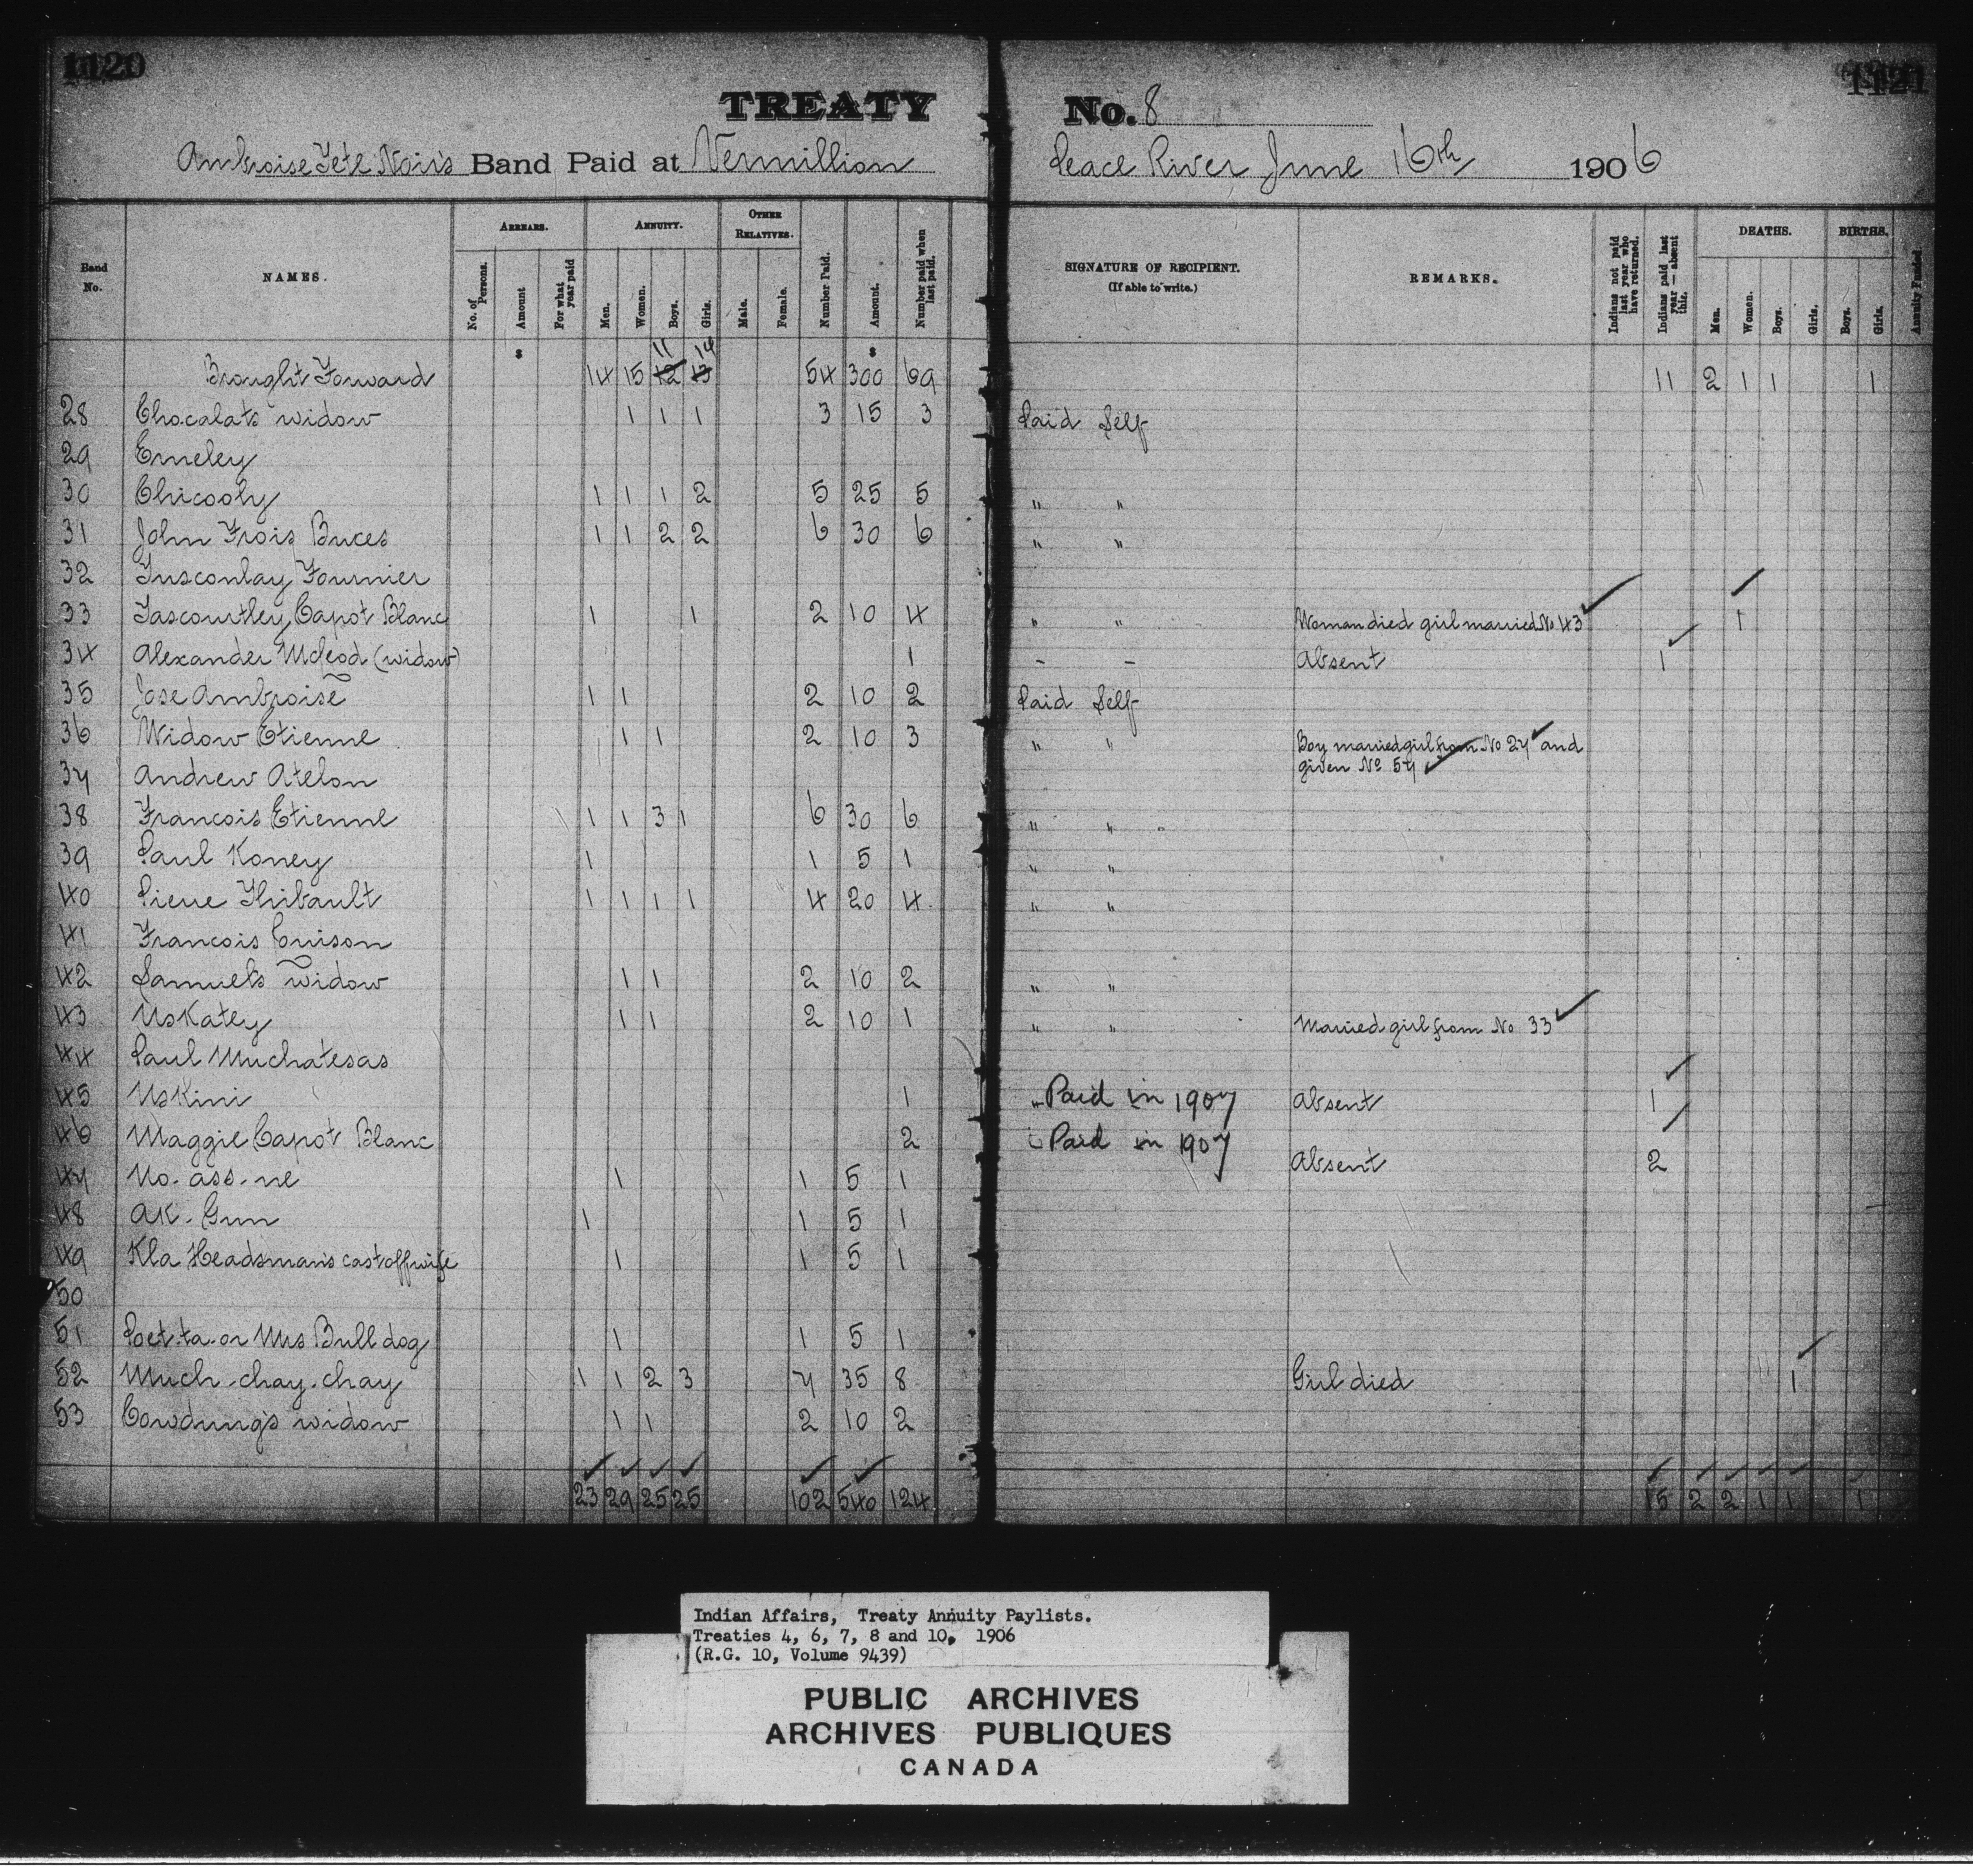 1120
1121
TREATY No. 8
Ambroise Tete Noir's Band Paid at Vermillion Peace River June 16th 1906
Band No. NAMES. ARREARS. No. of Persons. Amount For what year paid ANNUITY. Men. Women. Boys. Girls. OTHER RELATIVES. Male. Female. Number Paid. Amount. Number paid when last paid. SIGNATURE OF RECIPIENT. (If able to write.) REMARKS. Indians not paid last year who have returned. Indians paid last year — absent this. DEATHS. Men. Women. Boys. Girls. BIRTHS. Boys. Girls. Annuity Funded
$ $
11 14
Brought Forward 14 15 12 13 54 300 69 11 2 1 1 1
28 Chocalats widow 1 1 1 3 15 3 Paid Self
29 Emeley
30 Chicooly 1 1 1 2 5 25 5 " "
31 John Trois Buces 1 1 2 2 6 30 6 " "
32 Tusconlay Fournier
33 Tascourtley Capot Blanc 1 1 2 10 4 " " Woman died girl married No 43 1
34 Alexander Mcleod (widow) 1 - - Absent 1
35 Jose Ambroise 1 1 2 10 2 Paid Self
36 Widow Etienne 1 1 2 10 3 " " Boy married girl from No 27 and
given No 54
37 Andrew Atelon
38 Francois Etienne 1 1 3 1 6 30 6 " "
39 Paul Koney 1 1 5 1 " "
40 Pierre Thibault 1 1 1 1 4 20 4 " "
41 Francois Cuison
42 Samuels widow 1 1 2 10 2 " "
43 UsKatey 1 1 2 10 1 " " Married girl from No 33
44 Paul Muchatesas
45 UsKini 1 " Paid in 1907 Absent 1
46 Maggie Capot Blanc 2 Paid in 1907 Absent 2
47 No. ass. ne 1 1 5 1
48 AK. Gun 1 1 5 1
49 Kla Headsman's castoff wife 1 1 5 1
50
51 Poet.ta. or Mrs Bull dog 1 1 5 1
52 Much. chay. chay 1 1 2 3 7 35 8 Girl died 1
53 Cowdung's widow 1 1 2 10 2
23 29 25 25 102 540 124 15 2 2 1 1 1
Indian Affairs, Treaty Annuity Paylists.
Treaties 4, 6, 7, 8 and 10, 1906
(R.G. 10, Volume 9439)
PUBLIC ARCHIVES
ARCHIVES PUBLIQUES
CANADA